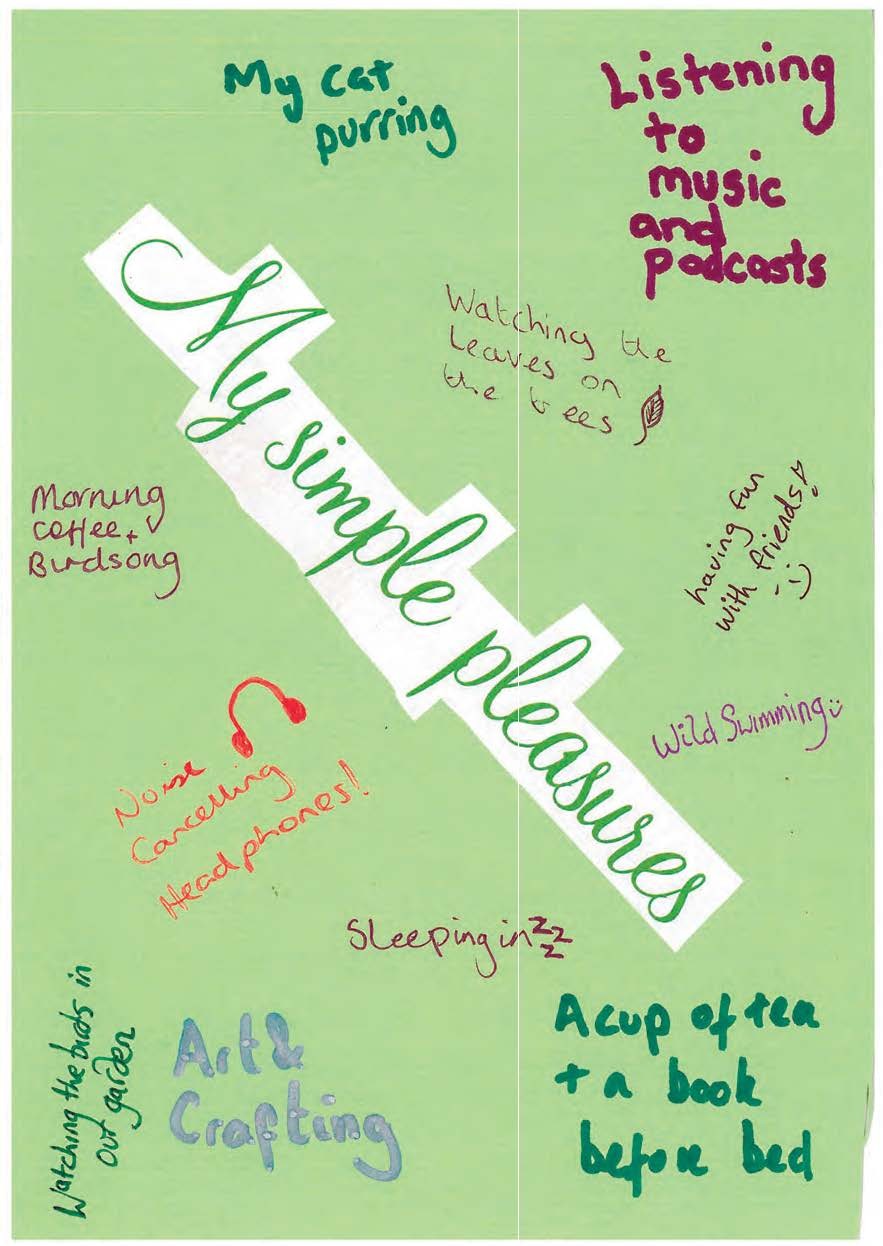 My cat
purring
Listening
to
music
and
podcasts
My simple pleasures
Watching the
leaves on
the trees
Morning
coffee +
Birdsong
having fun
with friends!
:)
Wild Swimming
Noise
Cancelling
Headphones!
Sleeping in zzz
Watching the birds in
our garden
Art &
Crafting
A cup of tea
+ a book
before bed